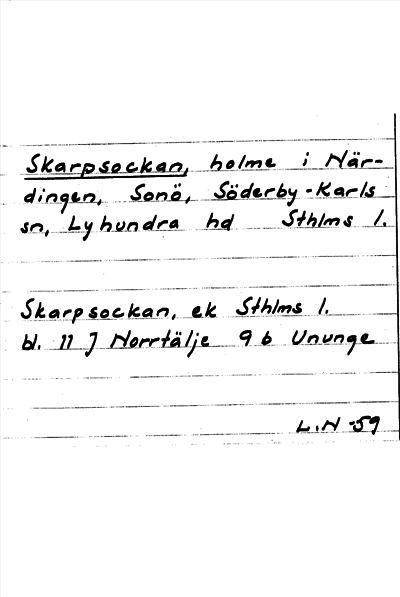 Skarpsockan, holme i När-
dingen, Sonö, Söderby-Karls
sn, Lyhundra hd Sthlms l.
Skarpsockan, ek Sthlms l.
bl. 11 J Norrtälje 9 b Ununge
L.N -59